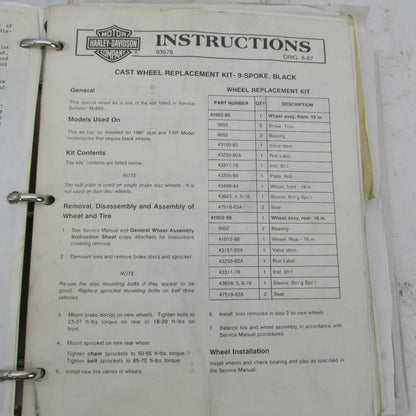 MOTOR
HARLEY-DAVIDSON
COMPANY
INSTRUCTIONS
93578
ORIG. 8-87
CAST WHEEL REPLACEMENT KIT- 9-SPOKE, BLACK
General
This special wheel kit is one of the kits listed in Service
Bulletin M-952.
Models Used On
This kit can be installed on 1987 XLH and FXR Model
motorcycles that require black wheels.
Kit Contents
The kits' contents are listed below.
NOTE
The hub plate is used on single brake disc wheels. It is
not used on dual disc wheels.
Removal, Disassembly and Assembly of
Wheel and Tire
1. See Service Manual and General Wheel Assembly
Instruction Sheet (copy attached) for instructions
covering removal.
2. Demount tires and remove brake discs and sprocket.
NOTE
Re-use the disc mounting bolts if they appear to be
good. Replace sprocket mounting bolts on belt drive
vehicles.
3. Mount brake disc(s) on new wheels. Tighten bolts to
23-27 ft-lbs torque on rear or 18-20 ft-lbs on
front.
4. Mount sprocket on new rear wheel.
Tighten chain sprockets to 50-55 ft-lbs torque.
Tighten belt sprockets to 65-70 ft-lbs torque.
5. Install new tire valves in wheels.
WHEEL REPLACEMENT KIT
PART NUMBER QTY DESCRIPTION
41002-88 1 Wheel assy, front- 19 in.
3655 5 Screw, Torx
9052 2 Bearing
43150-83 1 Valve stem
43250-80A 1 Rim Label
43311-78 1 Inst. Sh't
43355-84 1 Plate, Hub
43499-84 1 Wheel, front - 19 in.
43623, 4, 5, 6-78 1 Sleeve, Brn'g Spc'r
47519-83A 2 Seal
41009-88 1 Wheel assy, rear- 16 in.
9052 2 Bearing
41012-86 1 Wheel, Rear - 16 in.
43157-83A 1 Valve stem
43250-80A 1 Rim Label
43311-78 1 Inst. Sh't
43604, 5, 6-78 1 Sleeve, Brn'g Spc'r
47519-83A 2 Seal
6. Install tires removed in step 2 on new wheels.
7. Balance tire and wheel assembly in accordance with
Service Manual procedures.
Wheel Installation
Install wheels and check bearing end play as specified in
the Service Manual.